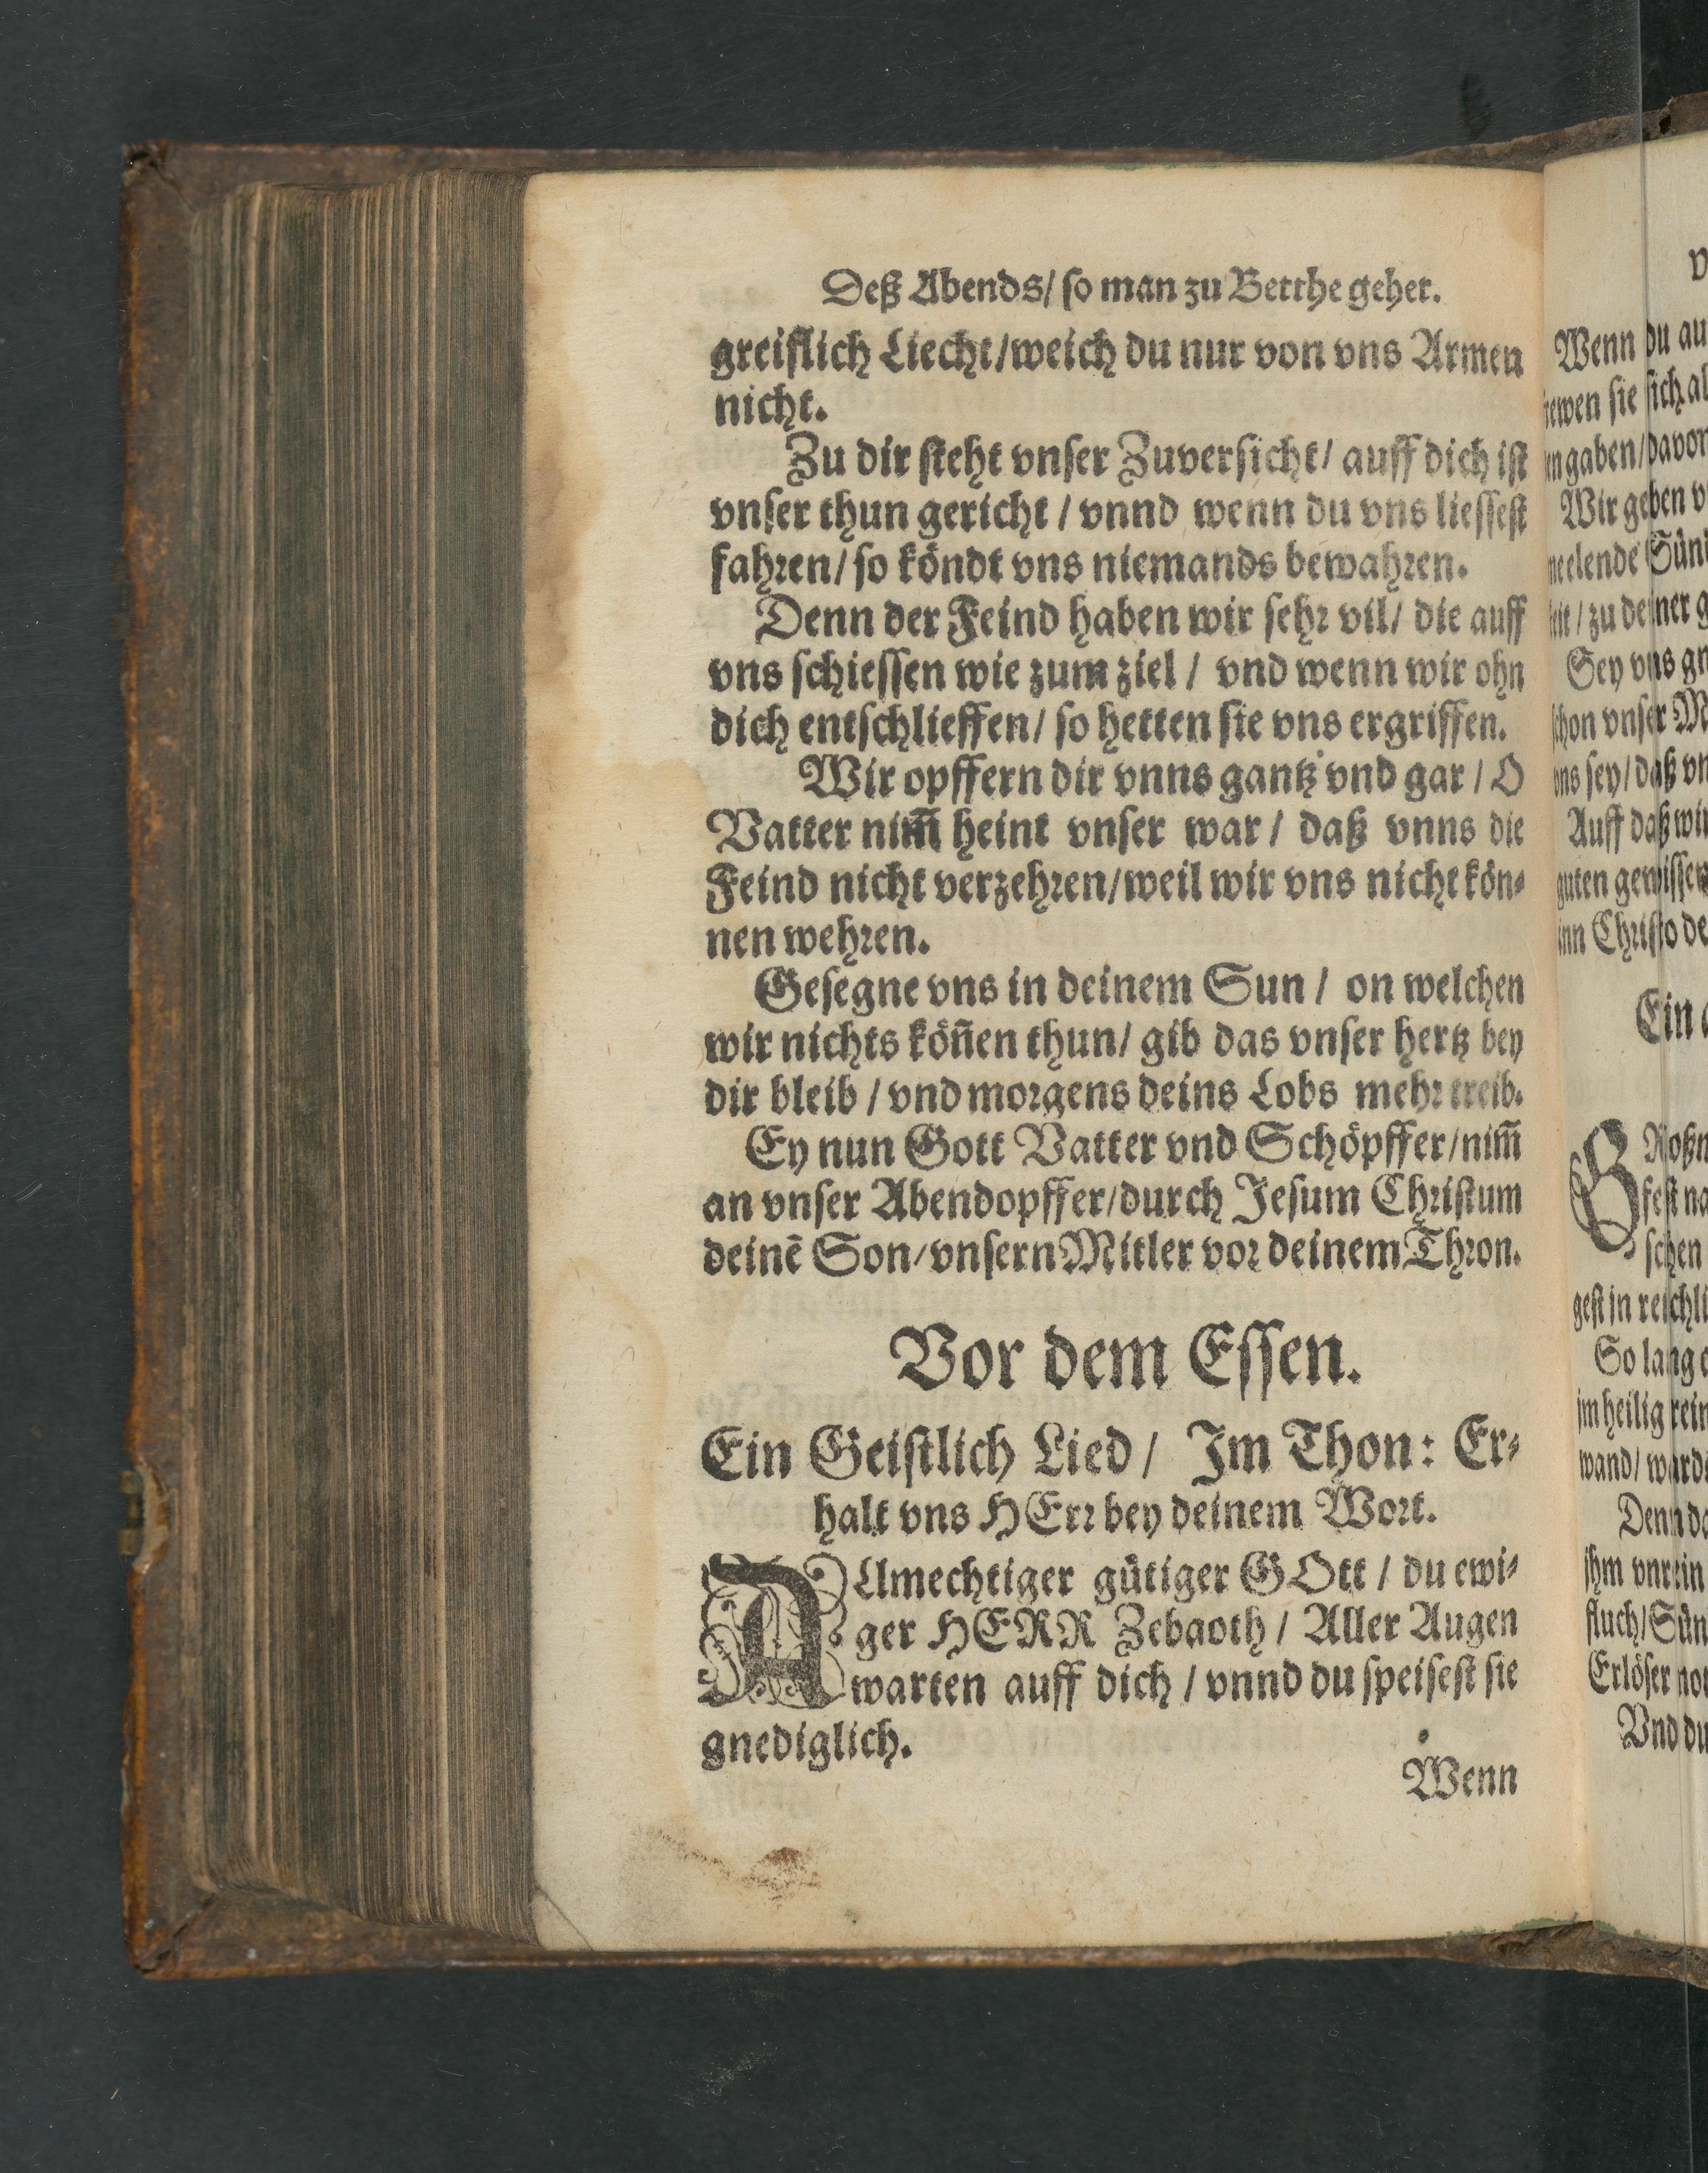 Deß Abends/ so man zu Betthe gehet.
greiflich Liecht/weich du nur von vns Armen
nicht.
Zu dir steht vnser Zuversicht/ auff dich ist
vnser thun gericht / vnnd wenn du vns liessest
fahren/ so köndt vns niemands bewahren.
Denn der Feind haben wir sehr vil/ die auff
vns schiessen wie zum ziel / vnd wenn wir ohn
dich entschlieffen/ so hetten sie vns ergriffen.
Wir opffern dir vnns gantz vnd gar / O
Vatter nim̃ heint vnser war / daß vnns die
Feind nicht verzehren/weil wir vns nicht kön⸗
nen wehren.
Gesegne vns in deinem Sun / on welchen
wir nichts köñen thun/ gib das vnser hertz bey
dir bleib / vnd morgens deins Lobs mehr treib.
Ey nun Gott Vatter vnd Schöpffer/nim̃
an vnser Abendopffer/durch Jesum Christum
deinē Son/vnsern Mitler vor deinem Thron.
Vor dem Essen.
Ein Geistlich Lied / Im Thon: Er⸗
halt vns HErr bey deinem Wort.
ALlmechtiger gütiger GOtt / du ewi⸗
ger HERR Zebaoth / Aller Augen
warten auff dich / vnnd du speisest sie
gnediglich.
Wenn
Wenn du au
sie sich al
gaben/davon
Wir geben
elende Sün
/ zu deiner g
Sey vns gn
schon vnser M
vns sey/daß vn
Auff daß wir
guten gewissen
inn Christo de
Ein
GRoßm
fest na
schen
gest in reichli
So lang
jm heilig rein
wand/ wurd
Denn da
jhm vnrein
fluch/Sün
Erlöser no
Vnd du